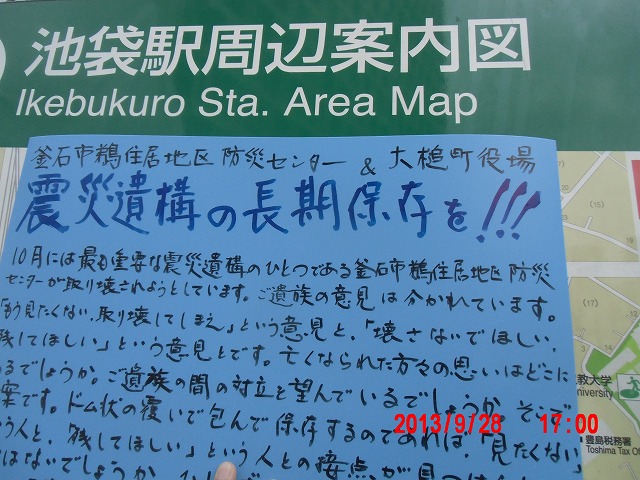 池袋駅周辺案内図
Ikebukuro Sta. Area Map
釜石市鵜住居地区防災センター & 大槌町役場
震災遺構の長期保存を!!!
10月には最も重要な震災遺構のひとつである釜石市鵜住居地区防災
センターが取り壊されようとしています。ご遺族の意見は分かれています。
「もう見たくない、取り壊してしまえ」という意見と、「壊さないでほしい、
残してほしい」という意見とです。亡くなられた方々の思いはどこに
あるでしょうか。ご遺族の間の対立を望んでいるでしょうか そこで
案です。ドーム状の覆いで包んで保存するのであれば、「見たくない」
う人と、「残してほしい」という人との接点が
はないでしょうか
(15)
(17)
(16)
教大学
University
豊島税務署
Toshima Tax Of
2013/9/28 17:00